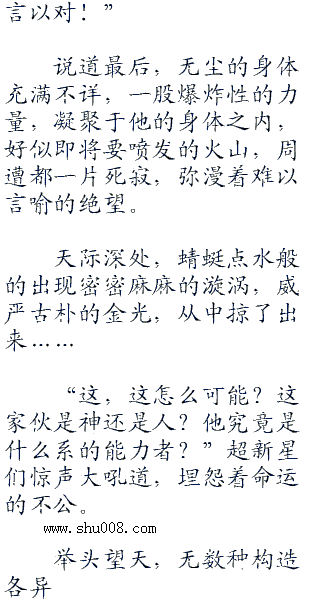 言以对！”
说道最后，无尘的身体
充满不详，一股爆炸性的力
量，凝聚于他的身体之内，
好似即将要喷发的火山，周
遭都一片死寂，弥漫着难以
言喻的绝望。
天际深处，蜻蜓点水般
的出现密密麻麻的漩涡，威
严古朴的金光，从中掠了出
来……
“这，这怎么可能？这
家伙是神还是人？他究竟是
什么系的能力者？”超新星
们惊声大吼道，埋怨着命运
的不公。
www.shu008.com
举头望天，无数种构造
各异